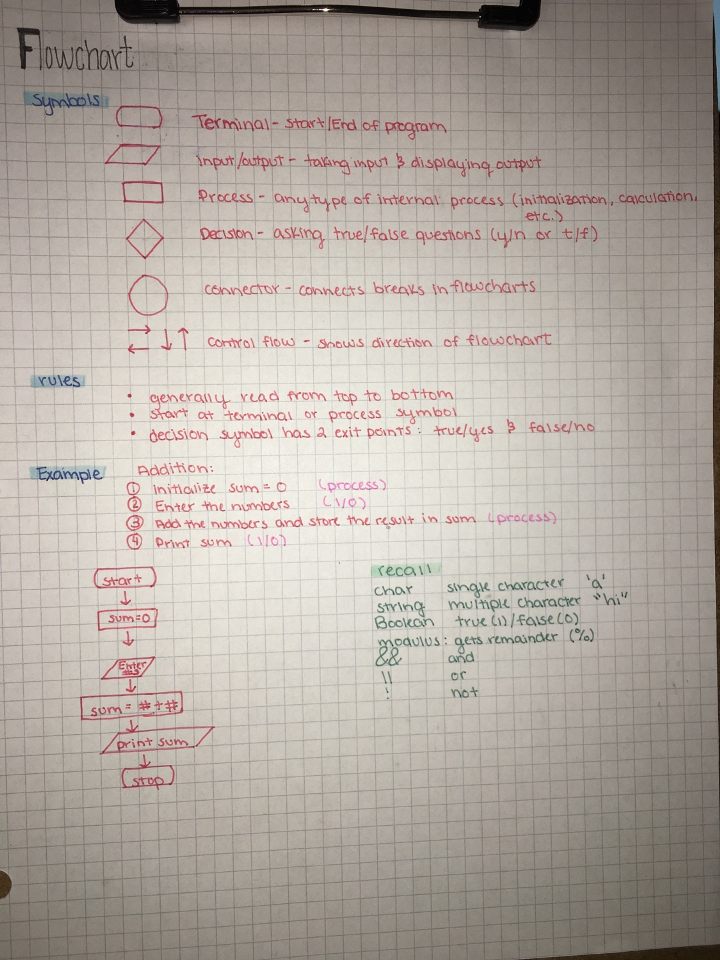 Flowchart
Symbols
Terminal - Start/End of program
input/output - taking input & displaying output
Process - any type of internal process (initialization, calculation,
etc.)
Decision - asking true/false questions (y/n or t/f)
connector - connects breaks in flowcharts
control flow - shows direction of flowchart
rules
• generally read from top to bottom
• start at terminal or process symbol
• decision symbol has 2 exit points: true/yes & false/no
Example
Addition:
① initialize sum = 0 (process)
② Enter the numbers (I/O)
③ Add the numbers and store the result in sum (process)
④ Print sum (I/O)
start
sum=0
Enter
#s
sum = # + #
print sum
stop
recall
char single character 'a'
string multiple character "hi"
Boolean true(1)/false(0)
modulus: gets remainder (%)
&& and
|| or
! not